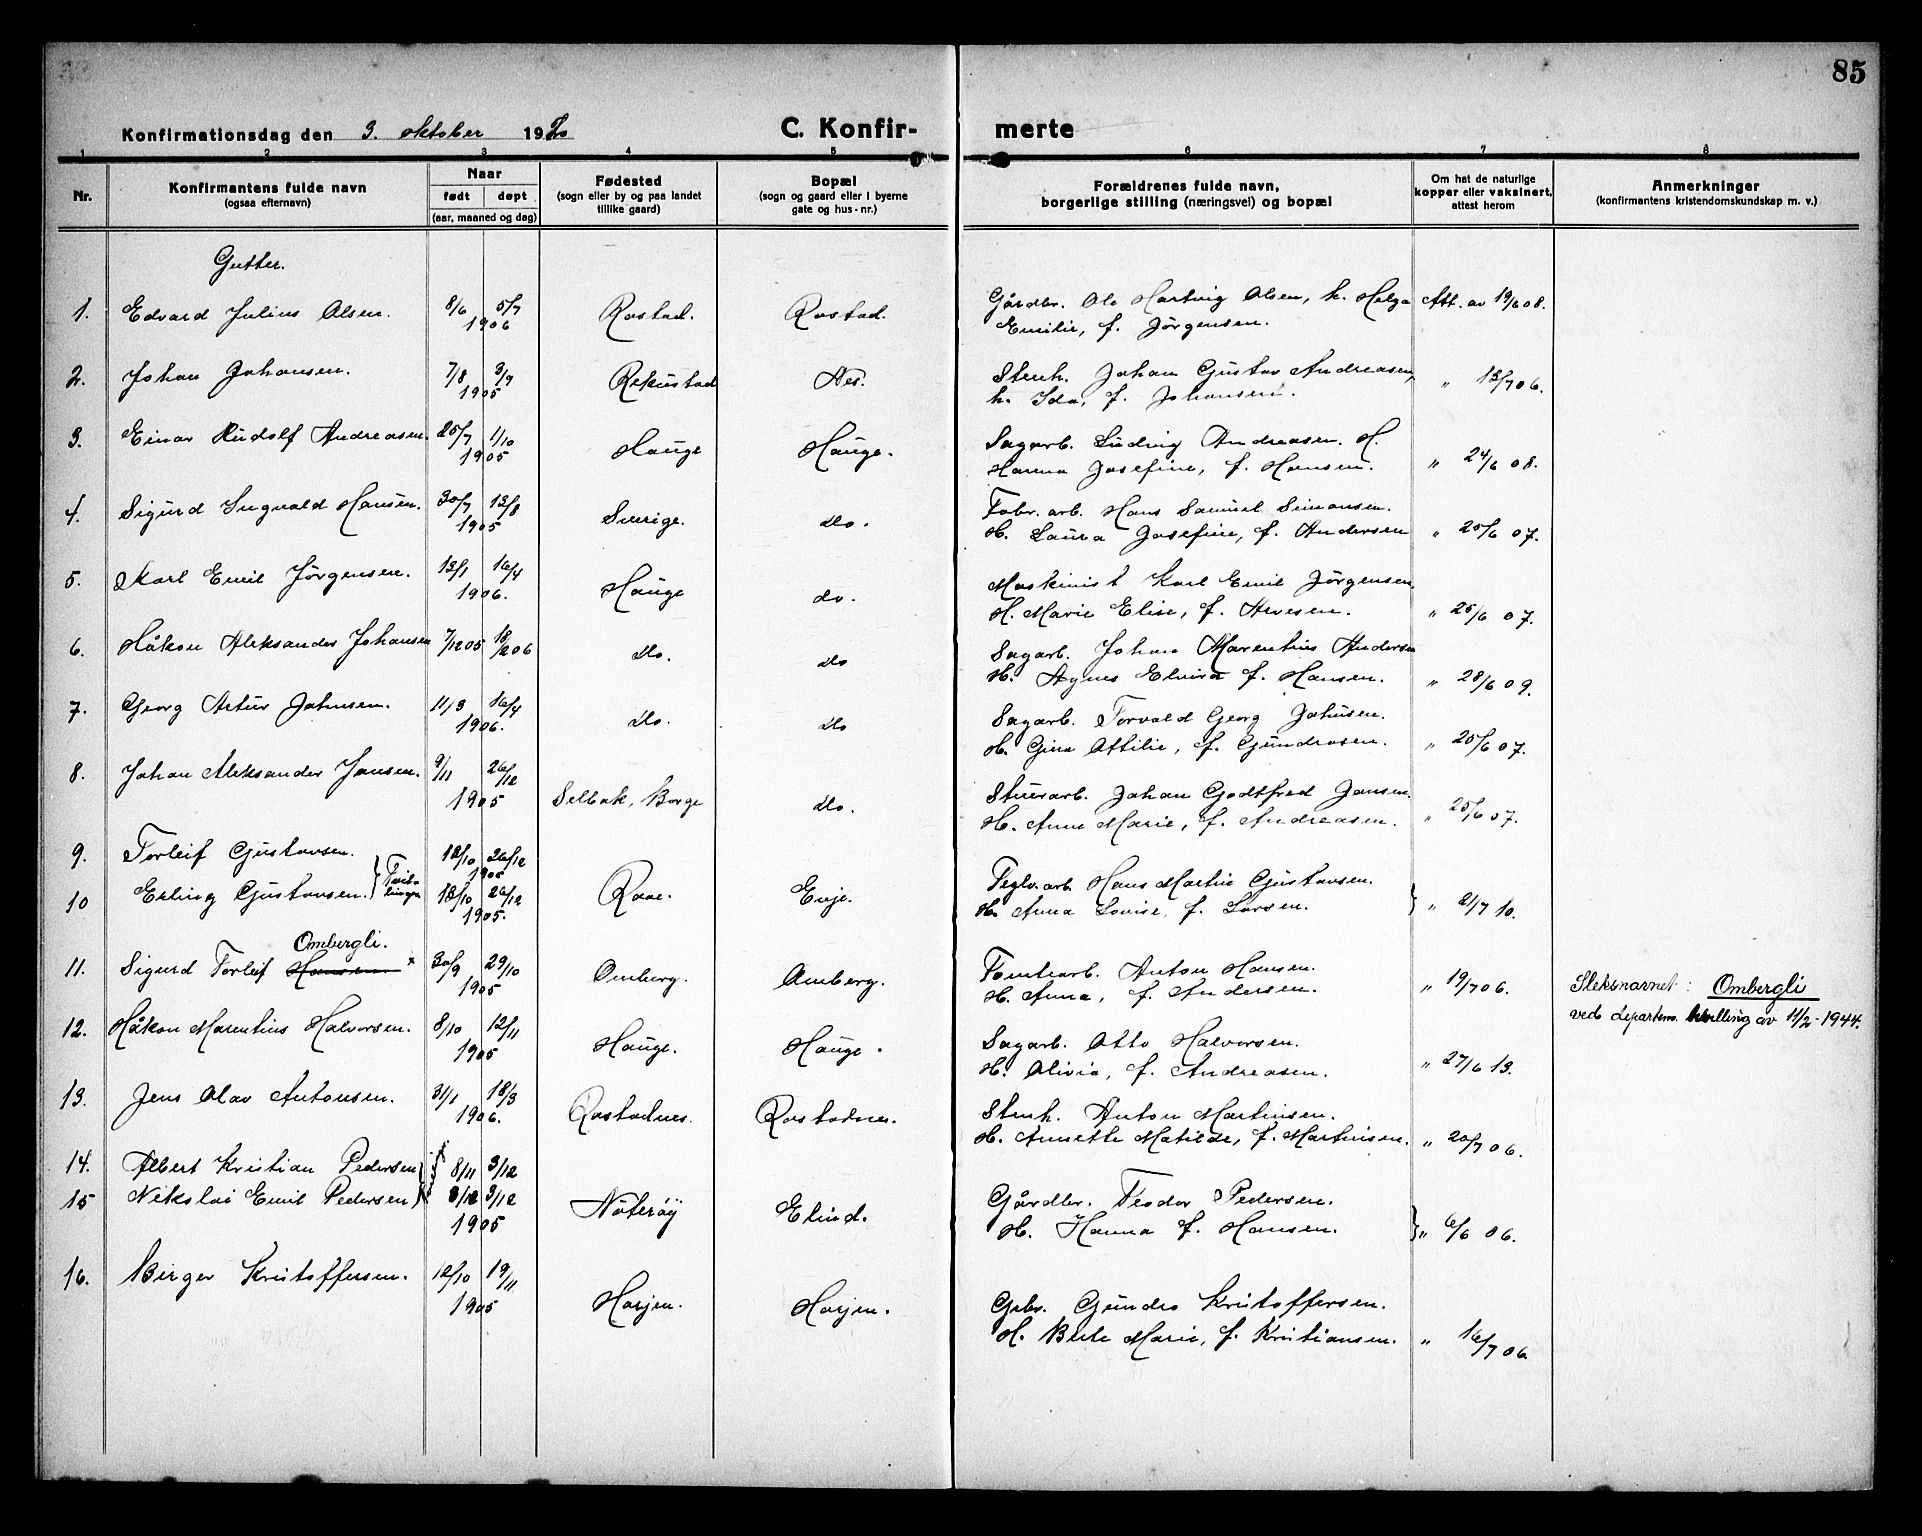 85
Konfirmationsdag den 3. oktober 1920
C. Konfirmerte
1 2 3 4 5 6 7 8
Nr.
Konfirmantens fulde navn
(ogsaa efternavn)
Naar
født døpt
(aar, maaned og dag)
Fødested
(sogn eller by og paa landet
tillike gaard)
Bopæl
(sogn og gaard eller i byerne
gate og hus-nr.)
Forældrenes fulde navn,
borgerlige stilling (næringsvei) og bopæl
Om hat de naturlige
kopper eller vaksinert,
attest herom
Anmerkninger
(konfirmantens kristendomskundskap m. v.)
Gutter.
1. Edvard Julius Olsen. 8/6 5/7 Rostad. Rostad. Gårdbr. Ole Hartvig Olsen, h. Helga Att. av 19/6 08.
1906 Emilie, f. Jørgensen.
2. Johan Johansen. 7/8 3/9 Rekustad Nes. Stenh. Johan Gustav Andreasen, " 13/7 06.
1905 h. Ida, f. Johansen.
3. Einar Rudolf Andreasen. 25/7 1/10 Hauge Hauge. Sagarb. Ludvig Andreasen. H.
1905 Hanna Josefine, f. Hansen. " 24/6 08.
4. Sigurd Ingvald Hansen. 30/7 13/8 Sverige. do. Fabr. arb. Hans Samuel Simonsen.
1905 H. Laura Josefine, f. Andersen " 25/6 07.
5. Karl Emil Jørgensen. 13/1 16/4 Hauge do. Maskinist Karl Emil Jørgensen.
1906. H. Marie Elise, f. Arvesen. " 25/6 07.
6. Håkon Aleksander Johansen 7/12 05 18/2 06 do. do Sagarb. Johan Marentius Andersen
H. Agnes Elvira f. Hansen. " 28/6 09.
7. Georg Artur Johnsen. 11/3 16/4 do. do Sagarb. Torvald Georg Johnsen.
1906. H. Gina Ottilie, f. Gundersen. " 25/6 07.
8. Johan Aleksander Jansen. 9/11 26/12 Selbak, Borge do. Stuerarb. Johan Godtfred Jansen.
1905 H. Anne Marie, f. Andreasen. " 25/6 07.
9. Torleif Gustavsen. 18/10 26/12
1905
10 Erling Gustavsen. } Tvillinger 18/10 26/12 Raae. Enje. Teglv.arb. Hans Martin Gustavsen.
1905. H. Anna Lovise, f. Larsen. } " 2/7 10.
Ombergli.
11. Sigurd Torleif Hansen x 30/9 29/10 Omberg. Omberg. Tomtearb. Anton Hansen.
1905 H. Anna, f. Andersen. " 19/7 06. Sleksnavnet: Ombergli
ved departem. bevilling av 11/2-1944.
12. Håkon Marentius Halvorsen. 8/10 12/11 Hauge. Hauge. Sagarb. Otto Halvorsen.
1905 H. Olivia, f. Andreasen. " 27/6 13.
13. Jens Olav Antonsen. 31/1 18/3 Rostadnes. Rostadnes. Stenh. Anton Martinsen.
1906. H. Annette Matilde, f. Martinsen. " 20/7 06.
14. Albert Kristian Pedersen 8/11 3/12
15 Nikolai Emil Pedersen 8/11 3/12 Nøterøy Elind. Gårdbr. Teodor Pedersen.
1905 H. Hanna f. Hansen. } " 6/6 06.
16. Birger Kristoffersen. 12/10 19/11
1905 Hasjen. Hasjen. Grbr. Gundro Kristoffersen.
H. Berte Marie, f. Kristiansen. " 16/7 06